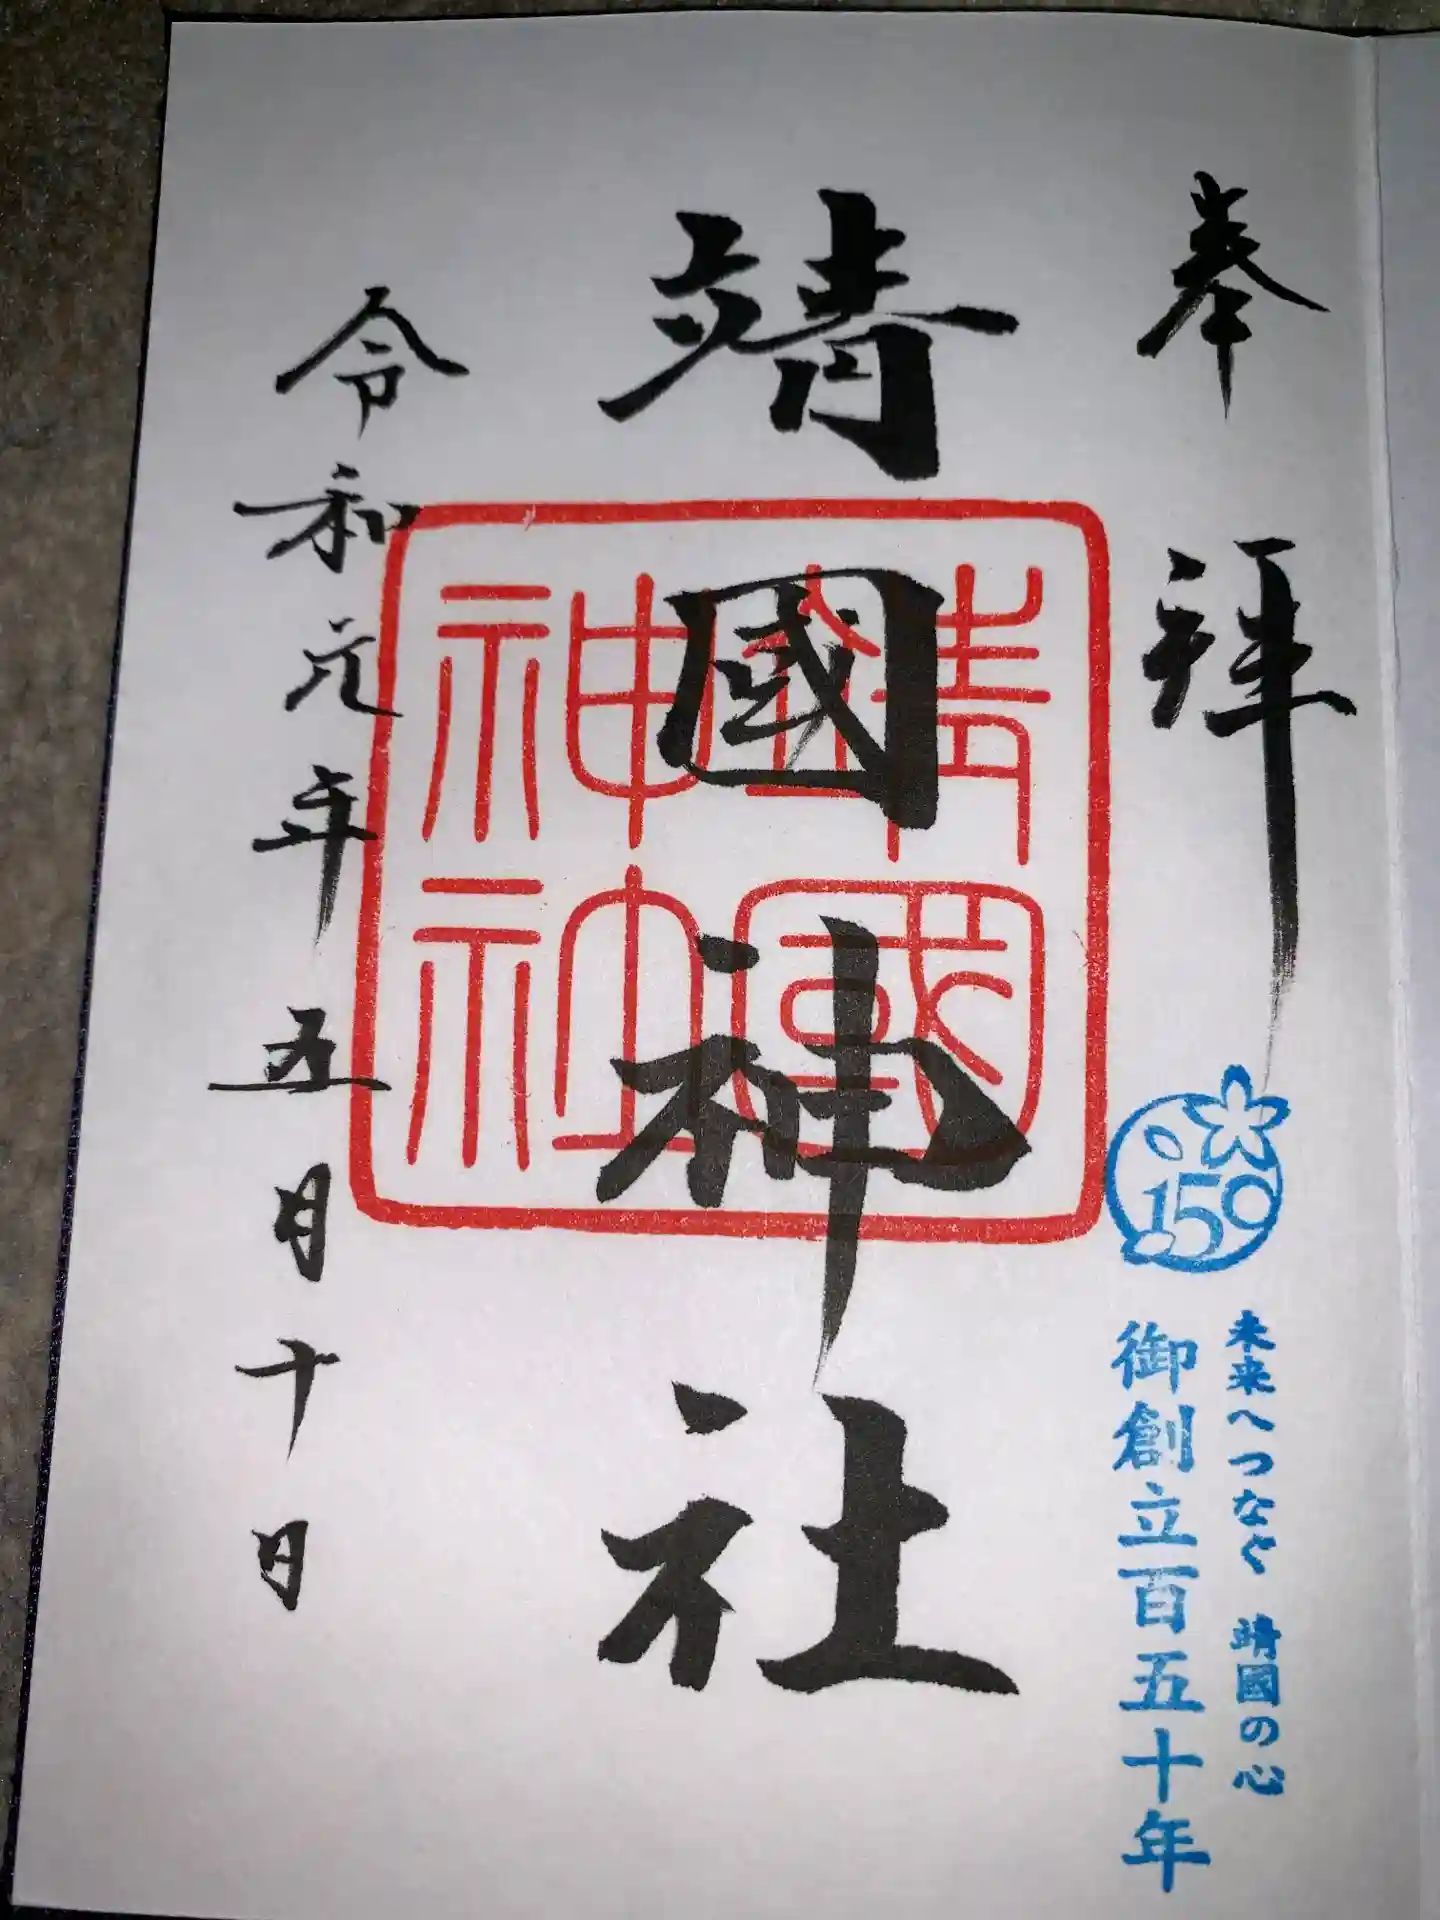 奉拝
150
未来へつなぐ 靖國の心
御創立百五十年
靖國神社
靖國神社
令和元年五月十日